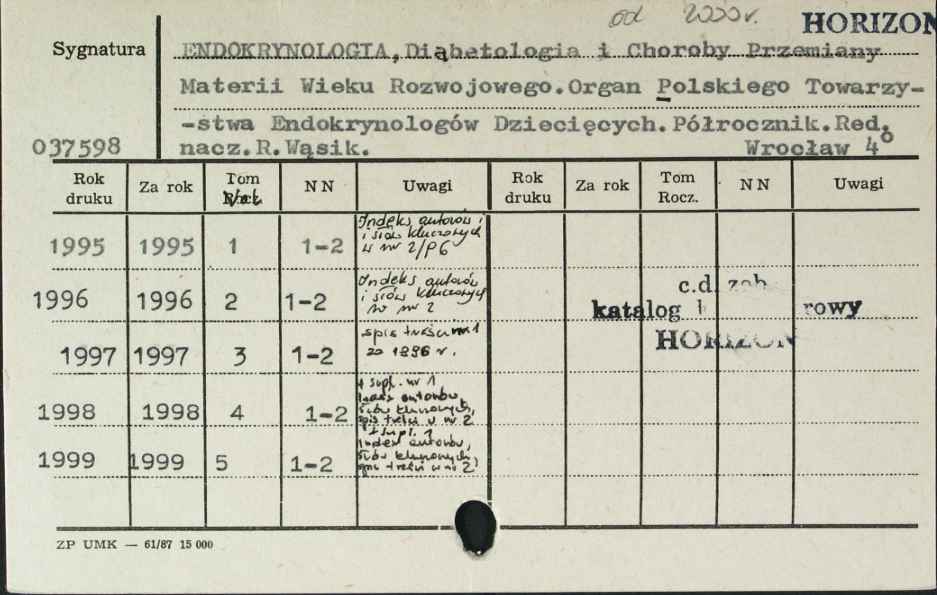 od 2000 r. HORIZON
Sygnatura
ENDOKRYNOLOGIA, Diabetologia i Choroby Przemiany
Materii Wieku Rozwojowego. Organ Polskiego Towarzy-
-stwa Endokrynologów Dziecięcych. Półrocznik. Red.
037598 nacz. R. Wąsik. Wrocław 4°
Rok druku Za rok Tom NN Uwagi Rok druku Za rok Tom Rocz. NN Uwagi
1995 1995 1 1-2 Indeks autorów i
i słów kluczowych
w nr 2/96
1996 1996 2 1-2 Indeks autorów
i słów kluczowych
w nr 2
c.d. zob.
katalog rowy
HORIZON
1997 1997 3 1-2 spis treści nr 1
za 1996 r.
1998 1998 4 1-2 + supl. nr 1
autorów,
słów kluczowych,
spis treści w nr 2
1999 1999 5 1-2 + supl. 1
index autorów,
słów kluczowych,
spis treści w nr 2
ZP UMK — 61/87 15 000